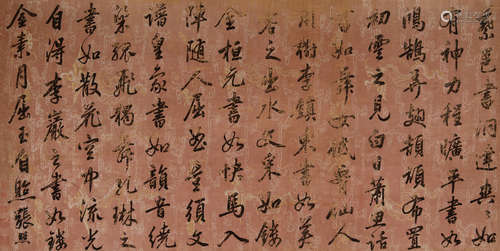 蔡邕書洞達與與如
有神力程曠平書如
鳴鵠弄翅頡頏布置
初雲之見白日蕭思話
書如舞女低腰仙人
嘯樹李鎮東書如芙
蓉之出水文采如鏤
金桓元書如快馬入
陣隨人屈曲豈須文
譜皇象書如韻音繞
梁孤飛獨舞孔琳之
書如散花空中流光
自得李巖之書如鏤
金素月屈玉自照張照